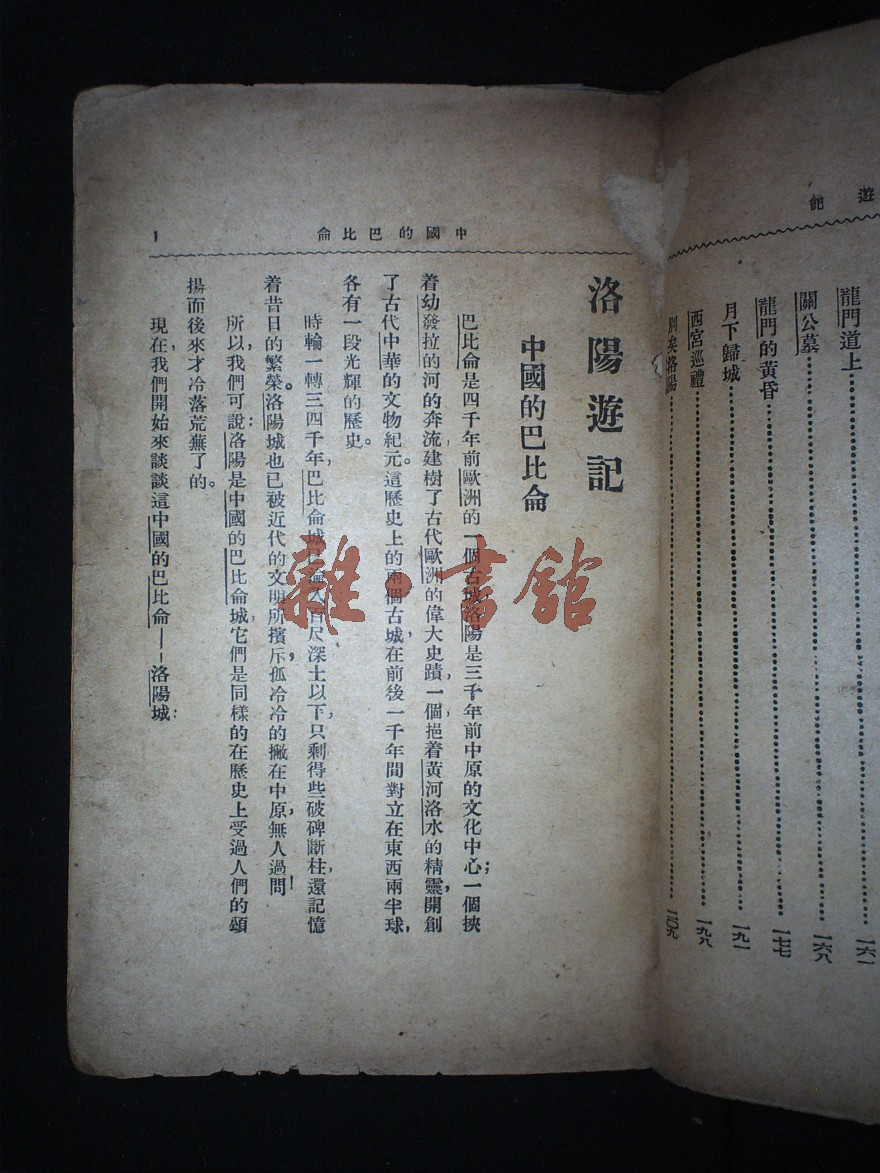 遊記
龍門道上 一六一
關公墓 一六八
龍門的黃昏 一七七
月下歸城 一九一
西宮巡禮 一九八
別矣洛陽 二〇九
中國的巴比侖
1
洛陽遊記
中國的巴比侖
巴比侖是四千年前歐洲的一個古城，洛陽是三千年前中原的文化中心；一個挾
着幼發拉的河的奔流，建樹了古代歐洲的偉大史蹟，一個挹着黃河洛水的精靈，開創
了古代中華的文物紀元。這歷史上的兩個古城，在前後一千年間對立在東西兩半球，
各有一段光輝的歷史。
時輪一轉三四千年，巴比侖城已淪入百尺深土以下，只剩得些破碑斷柱，還記憶
着昔日的繁榮。洛陽城也已被近代的文明所擯斥，孤冷冷的撇在中原，無人過問！
所以，我們可說：洛陽是中國的巴比侖城，它們是同樣的在歷史上受過人們的頌
揚而後來才冷落荒蕪了的。
現在，我們開始來談談這中國的巴比侖——洛陽城：
雜·書館